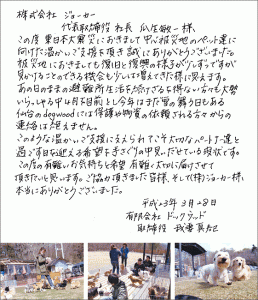 株式会社 ジョーカー
代表取締役 社長 瓜生敏一様
この度 東日本大震災におきまして 中心被災地のペット達に
向けた温かいご支援を頂き誠にありがとうございました。
被災地におきましても復旧と復興の様子が少しずつですが
見かけることのできる機会も少しは増えてきた様に思えます。
あの日のままの避難所生活を続けざるを得ない方々も大勢
いらっしゃる中 4月を目前とし今年はまだ雪の舞う日もある
仙台のdogwoodには保護や物資の依頼される方々からの
連絡は絶えません。
このような温かいご支援に支えられてこそ大切なペット達と
過ごす日を迎える希望をまざまざの中見いだせている現状です。
この度の有難いお気持ちと希望 有難く大切に届けさせて
頂きたいと思います。ご協力頂きました皆様、そして(株)ジョーカー様、
本当にありがとうございました。
平成23年 3月28日
有限会社 ドッグウッド
取締役 我妻真紀